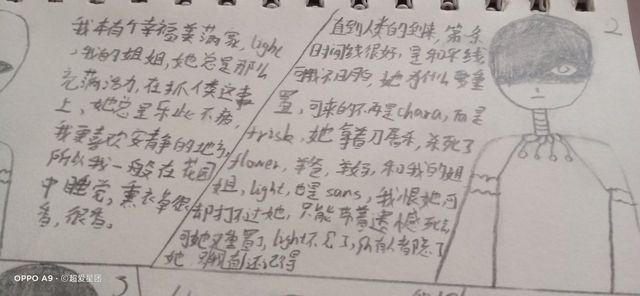 我本有个幸福美满家,light
,我的姐姐,她总是那么
充满活力,在抓人类这事
上,她总是乐此不疲,
我更喜欢安静的地方
所以我一般在花园
中睡觉,薰衣草很
香,很香。
直到人类的到来,第一条
时间线很好,是和平线
可我不明白,她为什么要重
置,可来的不再是chara,而是
frisk,她拿着刀屠杀,杀死了
flower,羊爸,羊妈,和我的姐
姐,light,也是sans,我恨她可
却打不过她,只能带着遗憾死去
可她又重置了,light不见了,所有人都忘了
她 我还记得
2
3
OPPO A9 · ©超爱星团